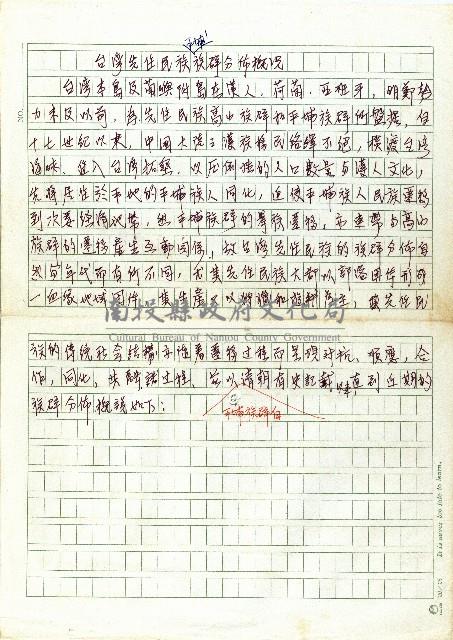 平埔
台灣先住民族族群分佈概況
台灣本島及蘭嶼附島在漢人、荷蘭、西班牙、明鄭勢
力未及以前，為先住民族高山族群和平埔族群所盤據，自
十七世紀以來，中國大陸之漢族移民絡繹不絕，橫渡台灣
海峽，進入台灣拓墾，以壓倒性的人口數量與漢人文化，
先將居住於平地的平埔族人同化，迫使平埔族人民族遷移
到次要經濟地帶，然平埔族群的舉族遷移，亦連帶與高山
族群的遷移產生互動關係，故台灣先住民族的族群分佈自
然與年代而有所不同，尤其先住民族大都以部落團体形成
一血緣地域團体，其生產以狩獵和游耕為主，使先住民
南投縣政府文化局
Cultural Bureau of Nantou County Government
族的傳統社會結構亦隨著遷移過程而呈現對抗、順應、合
作，同化，失融諸過程、茲以清朝有史記載時直到近期的
族群分佈概說如下：
平埔族群自
NO.
It is never too late to learn.